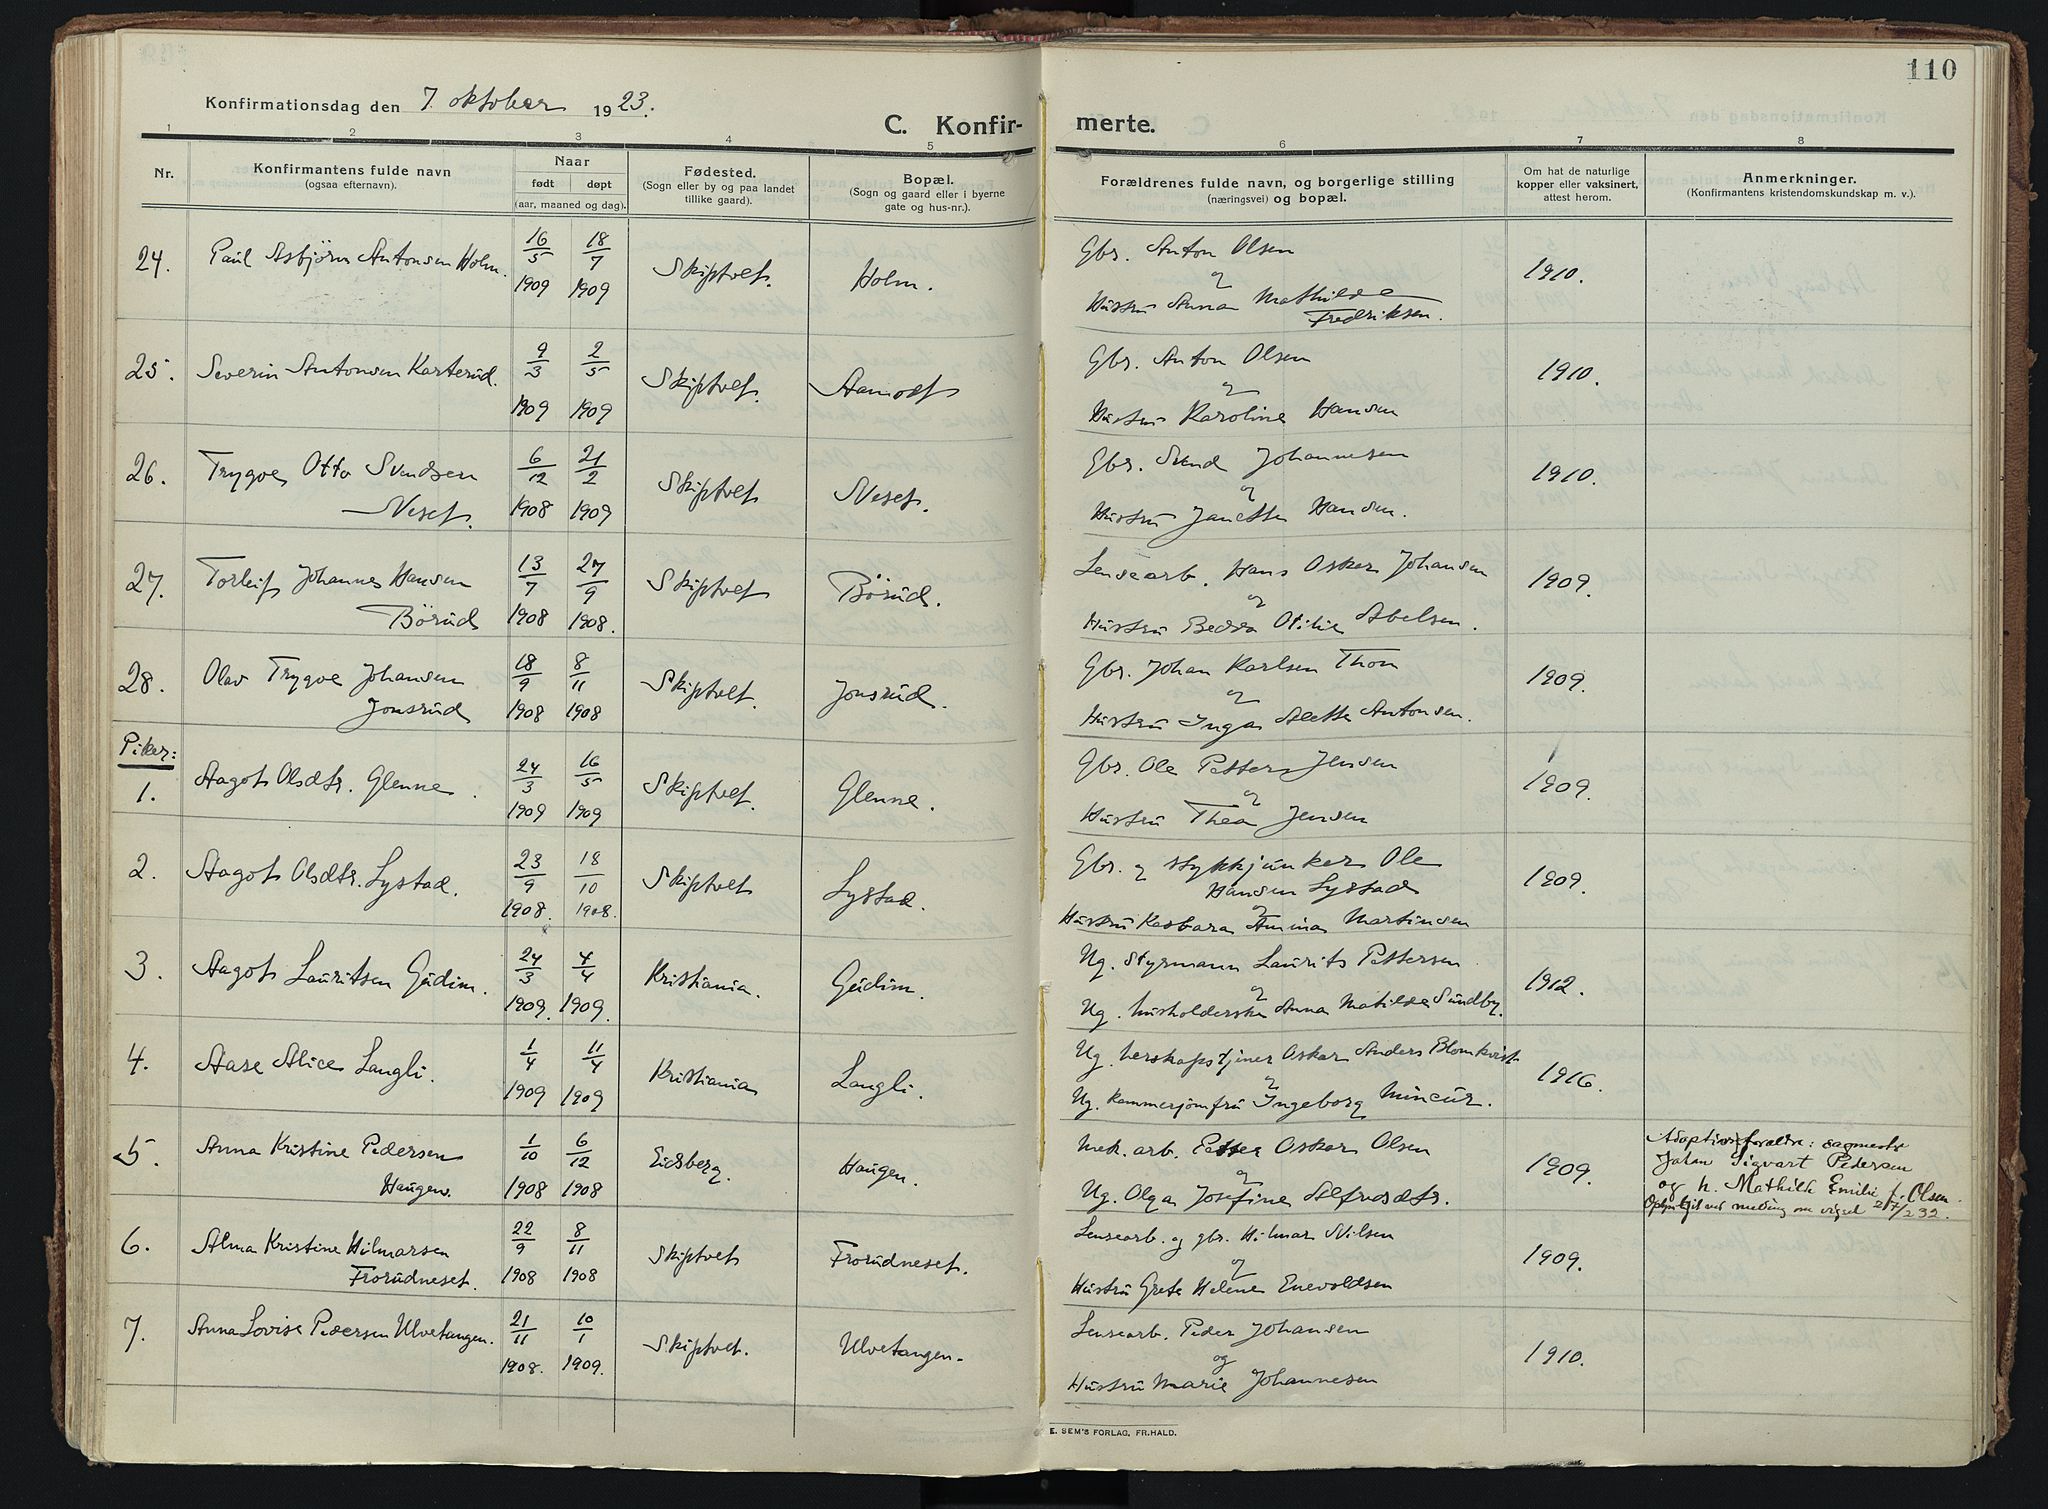 110
Konfirmationsdag den 7 oktober 1923.
C. Konfirmerte.
1 2 3 4 5 6 7 8
Nr.
Konfirmantens fulde navn
(ogsaa efternavn).
Naar
født døpt
(aar, maaned og dag).
Fødested.
(Sogn eller by og paa landet
tillike gaard).
Bopæl.
(Sogn og gaard eller i byerne
gate og hus-nr.).
Forældrenes fulde navn, og borgerlige stilling
(næringsvei) og bopæl.
Om hat de naturlige
kopper eller vaksinert,
attest herom.
Anmerkninger.
(Konfirmantens kristendomskundskap m. v.).
24. Paul Asbjörn Antonsen Holm. 16/5 1909 18/7 1909 Skiptvet. Holm. Gbr. Anton Olsen
og
Hustru Anna Mathilde
Fredriksen. 1910.
25. Severin Antonsen Karterud. 9/3 1909 2/5 1909 Skiptvet. Aamodt Gbr. Anton Olsen
og
Hustru Karoline Hansen 1910.
26. Trygve Otto Svendsen
Neset. 6/12 1908 21/2 1909 Skiptvet Neset. Gbr. Svend Johannesen
og
Hustru Janette Hansen. 1910.
27. Torleif Johannes Hansen
Börud 13/7 1908 27/9 1908. Skiptvet Börud. Lensearb. Hans Oskar Johansen
og
Hustru Bedra Otilie Abelsen. 1909.
28. Olav Trygve Johansen
Jonsrud 18/9 1908 8/11 1908 Skiptvet. Jonsrud. Gbr. Johan Karlsen Thon
og
Hustru Inga Alette Antonsen. 1909.
Piker:
1. Aagot Olsdtr. Glenne. 24/3 1909 16/5 1909 Skiptvet. Glenne. Gbr. Ole Petter Jensen
og
Hustru Thea Jensen 1909.
2. Aagot Olsdtr. Lystad. 23/9 1908. 18/10 1908. Skiptvet Lystad. Gbr. og stykkjunker Ole
Hansen Lystad
og
Hustru Kasbara Amina Martinsen 1909.
3. Aagot Lauritsen Gudim. 24/3 1909. 4/4 1909. Kristiania. Gudim. Ug. Styrmann Laurits Pettersen
og
Ug. husholderske Anna Matilde Sundby. 1912.
4. Aase Alice Langli. 1/4 1909 11/4 1909 Kristiania Langli. Ug. herskapstjener Oskar Anders Blomkvist
og
Ug. kammerjomfru Ingeborg Mincur. 1916.
5. Anna Kristine Pedersen
Haugen. 1/10 1908 6/12 1908 Eidsberg. Haugen. Mek. arb. Petter Oskar Olsen
og
Ug. Olga Josefine Alfredsdtr. 1909. Adoptivforældre: sagmester
Johan Sigvart Pedersen
og h. Mathilde Emilie f. Olsen.
6. Alma Kristine Hilmarsen
Frorudneset. 22/9 1908 8/11 1908 Skiptvet Frorudneset. Lensearb. og gbr. Hilmar Nilsen
og
Hustru Grete Helene Enevoldsen 1909.
7. Anna Lovise Pedersen Ulvetangen. 21/11 1908. 10/1 1909. Skiptvet. Ulvetangen. Lensearb. Peder Johansen
og
Hustru Marie Johannesen 1910.
E. SEM'S FORLAG, FR.HALD.